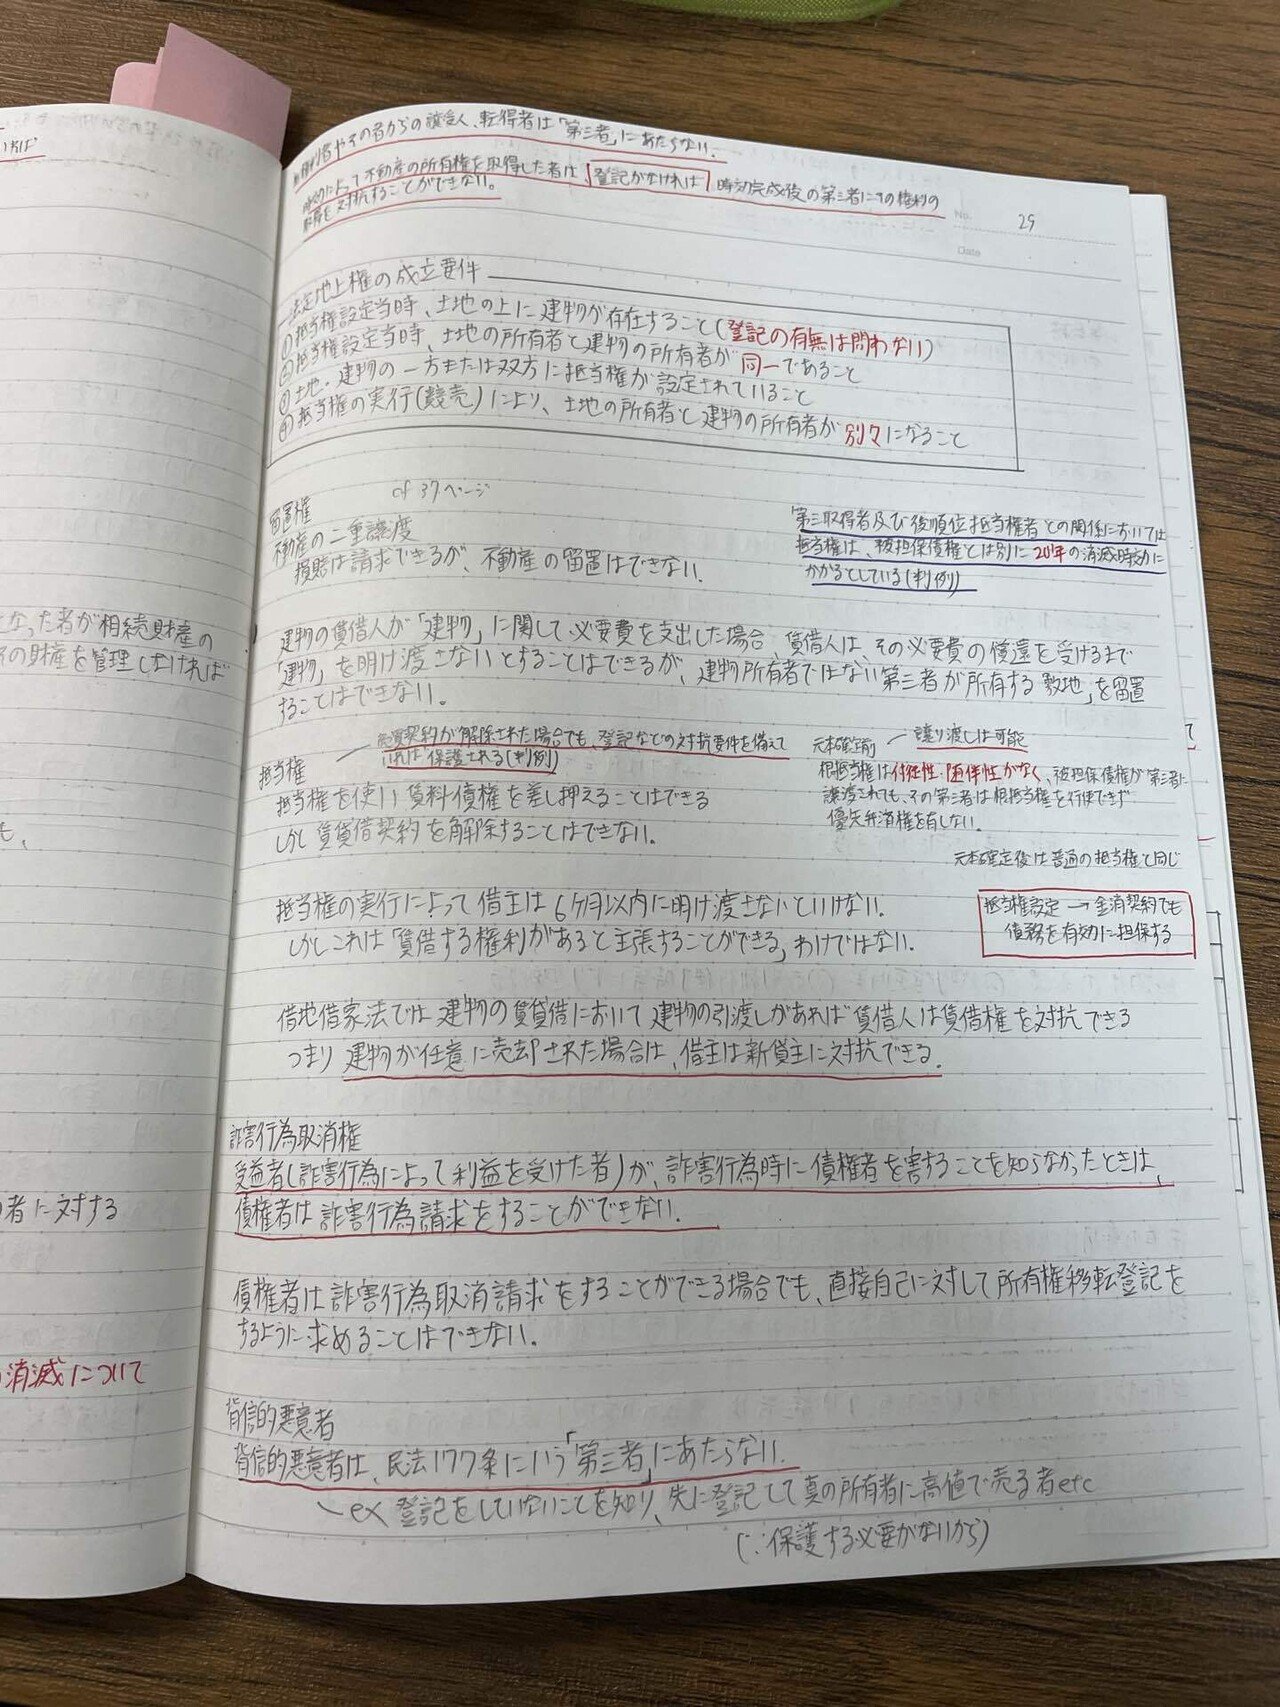 いれば
となった者が相続財産の
の財産を管理しなければ
も、
者に対する
消滅について
無権利者やその者からの譲受人、転得者は「第三者」にあたらない。
時効によって不動産の所有権を取得した者は登記がなければ時効完成後の第三者にその権利の
取得を対抗することができない。
No. 29
Date
法定地上権の成立要件
①抵当権設定当時、土地の上に建物が存在すること(登記の有無は問わない)
②抵当権設定当時、土地の所有者と建物の所有者が同一であること
③土地・建物の一方または双方に抵当権が設定されていること
④抵当権の実行(競売)により、土地の所有者と建物の所有者が別々になること
留置権 cf 37ページ
不動産の二重譲渡
損賠は請求できるが、不動産の留置はできない。
第三取得者及び後順位抵当権者との関係においては
抵当権は、被担保債権とは別に20年の消滅時効に
かかるとしている(判例)
建物の賃借人が「建物」に関して必要費を支出した場合、賃借人は、その必要費の償還を受けるまで
「建物」を明け渡さないとすることはできるが、建物所有者ではない第三者が所有する「敷地」を留置
することはできない。
売買契約が解除された場合でも、登記などの対抗要件を備えて
いれば保護される(判例)
抵当権
抵当権を使い賃料債権を差し押えることはできる
しかし賃貸借契約を解除することはできない。
元本確定前 譲り渡しは可能
根抵当権は付従性・随伴性がなく、被担保債権が第三者に
譲渡されても、その第三者は根抵当権を行使できず
優先弁済権を有しない。
元本確定後は普通の抵当権と同じ
抵当権の実行によって借主は6ヶ月以内に明け渡さないといけない。
しかしこれは「賃借する権利があると主張することができる」わけではない。
抵当権設定→金消契約でも
債務を有効に担保する
借地借家法では建物の賃貸借において建物の引渡しがあれば賃借人は賃借権を対抗できる
つまり建物が任意に売却された場合は、借主は新貸主に対抗できる。
詐害行為取消権
受益者(詐害行為によって利益を受けた者)が、詐害行為時に債権者を害することを知らなかったときは、
債権者は詐害行為請求をすることができない。
債権者は詐害行為取消請求をすることができる場合でも、直接自己に対して所有権移転登記を
するように求めることはできない。
背信的悪意者
背信的悪意者は、民法177条にいう「第三者」にあたらない。
ex 登記をしていないことを知り、先に登記して真の所有者に高値で売る者etc
(∵保護する必要がないから)